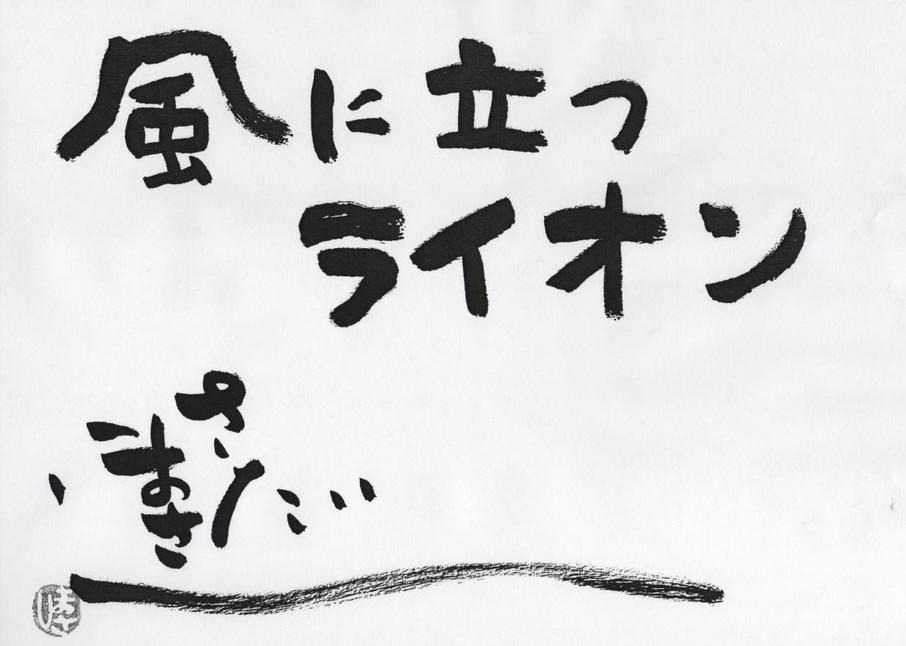 風に立つ
ライオン
さだまさし